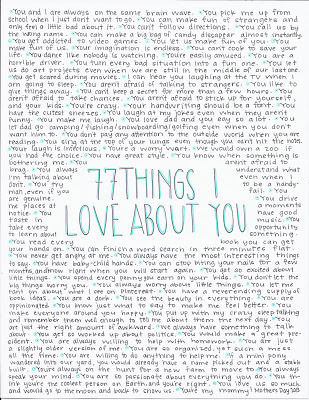 •You and I are always on the same brain wave. •You pick me up from
school when I just don't want to go. •You can make fun of strangers and
only feel a little bad about it. •You can't follow directions. •You call us by
the wrong name. •You can make a big bag of candy disappear almost instantly.
•You get addicted to video games. •You let us make fun of you. •You
make fun of us. •Your imagination is endless. •You can't cook to save your
life. •You dance like nobody is watching. •You're easily amused. •You are a
horrible driver. •You turn every bad situation into a fun one. •You let
us do art projects even when we are still in the middle of our last one.
•You get scared during movies. •I can hear you laughing at the TV when I
am going to sleep. •You aren't afraid of talking to strangers. •You like to
give things away. •You can't keep a secret for more than a few hours. •You
aren't afraid to take chances. •You aren't afraid to stick up for yourself,
and your kids. •You're crazy. •Your handwriting should be a font. •You
have the cutest sneezes. •You laugh at my jokes even when they aren't
funny. •You make me laugh. •You love dad and you say so a lot. •You
let dad go camping/fishing/snowboarding/golfing even when you don't
want him to. •You don't pay any attention to the outside world when you are
reading. •You sing at the top of your lungs even though you can't hit the notes.
•Your laugh is infectious. •You're a worry wart. •We would own a zoo if
you had the choice. •You have great style. •You know when something is
bothering me. •You aren't afraid to
brag. •You always understand what
I'm talking about even when I
don't. •You try to be a handy-
man, even if you fail. •You
are genuine. •You drive
me places at a moments
notice. •You have good
taste in music. •You
take every opportunity
to learn about something.
•You read every book you can get
your hands on. •You can finish a word search in three minutes flat.
•You never get angry at me. •You always have the most interesting things
to say. •You have baby-child hands. •You can stop biting your nails for a few
months, and now right when you will start again. •You get so excited about
little things. •You spend every penny you earn on your kids. •You don't let the
big things worry you. •You always worry about little things. •You let me
rant on about what I see on Pinterest. •You have a neverending supply of
book ideas. •You are a dork. •You see the beauty in everything. •You are
opinionated. •You know just what to say to make me feel better. •You
make everyone around you happy. •You put up with my crazy sleep talking
and remember them well enough to tell me about them the next day. •You
are just the right amount of awkward. •We always have something to talk
about. •You get so worked up about politics. •You would make a great pre-
sident. •You are always willing to help with homework. •You are just
a slightly older version of me. •You are so organized, yet such a mess
all the time. •You are willing to do anything to help me. •If a mini pony
wandered into our yard, you would already have a name picked out and a stable
built. •You're always on the hunt for a new farm to move to. •You always
speak your mind. •You are so passionate about everything you do. •You th-
ink you're the coolest person on Earth, and you're right. •You love us so much
and would go to the moon and back to show us. •You're my mommy! Mothers Day 2013
77 THINGS
I LOVE ABOUT YOU